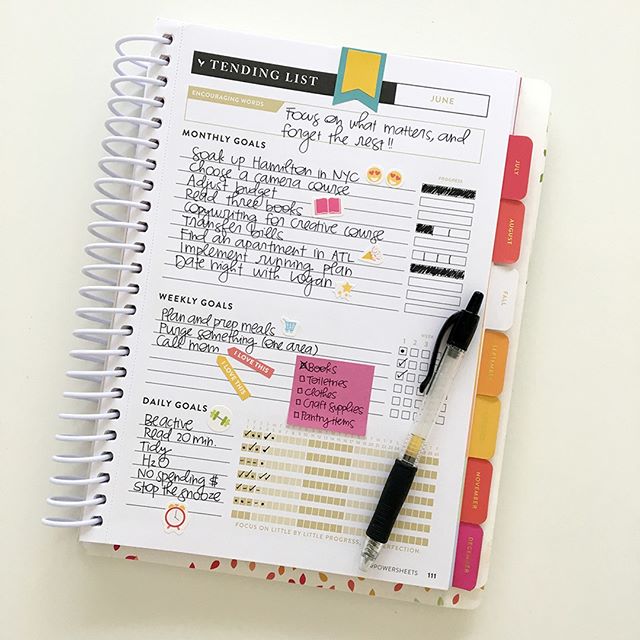 TENDING LIST
JUNE
ENCOURAGING WORDS
Focus on what matters, and
forget the rest!!
MONTHLY GOALS
PROGRESS
Soak up Hamilton in NYC
Choose a camera course
Adjust budget
Read three books
Copywriting for creative course
Transfer bills
Find an apartment in ATL
Implement running plan
Date night with Logan
WEEKLY GOALS
WEEK
1 2 3 4
Plan and prep meals
Purge something (one area)
Call mom
I LOVE THIS
I LOVE THIS
Books
Toiletries
Clothes
Craft supplies
Pantry items
DAILY GOALS
Be active
Read 20 min.
Tidy
H2O
No spending $
Stop the snooze
FOCUS ON LITTLE BY LITTLE PROGRESS,
PERFECTION.
POWERSHEETS
111
JULY
AUGUST
FALL
SEPTEMBER
NOVEMBER
DECEMBER